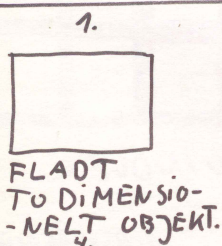 1.
FLADT
TO DIMENSIO-
-NELT OBJEKT.
4.